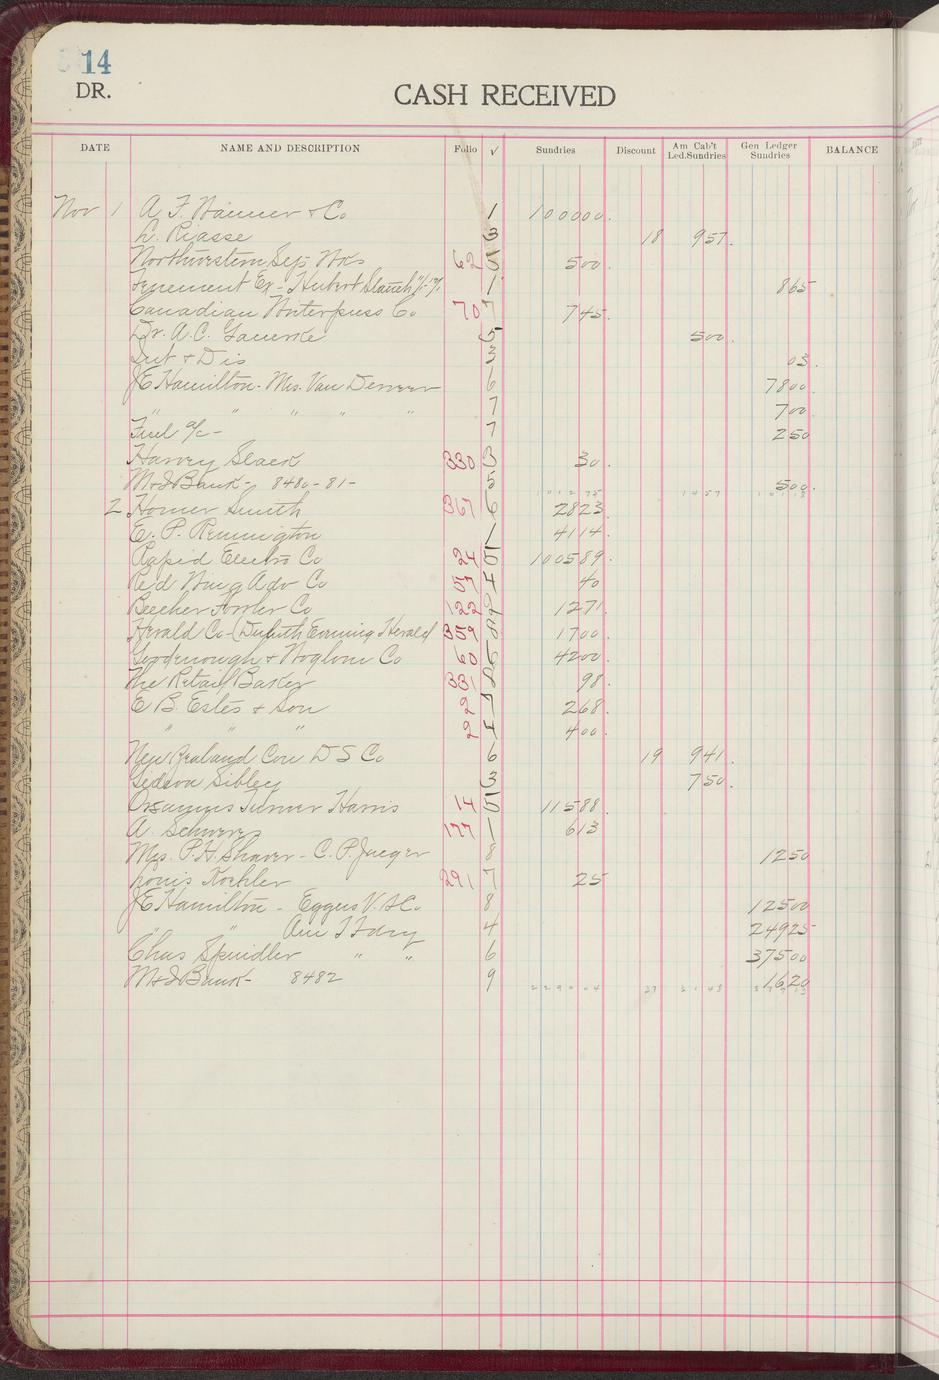 14
DR.
CASH RECEIVED
DATE NAME AND DESCRIPTION Folio √ Sundries Discount Am Cab't Led.Sundries Gen Ledger Sundries BALANCE
Nov 1 A. F. & Co 1 100000
L. 3 18 957
Northwestern Wks 62 5 500
Tenement Ex - Hubert 1 865
Canadian Co 70 7 745
Dr. A.C. 5 500
Int & Dis 3 03
JE Hamilton - Mrs. Van 6 7800
" " " " " 7 700
Fuel a/c - 7 250
Harvey Slack 330 3 30
M&I Bank - 8480-81- 5 500
1 0 1 2 75 14 57
2 Homer Smith 367 6 2823
E. P. Remington 1 4114
Rapid Electro Co 24 5 100589
Red Wing Adv Co 57 4 40
Beecher Co 122 1271
Herald Co - (Duluth Evening Herald) 359 8 1700
Goodenough & Woglom Co 60 6 4200
The Retail Baker 331 98
E B. Estes & Son 2 268
" " " 2 4 400
New Zealand Con D S Co 6 19 941
Gideon Sibley 3 750
Orsamus Turner Harris 14 5 11588
A. 177 1 613
Mrs. P. H. Shaver - C. P. Jaeger 8 1250
Louis Koehler 291 7 25
JE Hamilton - Eggers V. & Co 8 12500
" " Am T Fdry 4 24925
Chas Spindler " " 6 37500
M&I Bank - 8482 9 1620
2 2 9 0 04 37 2 1 48